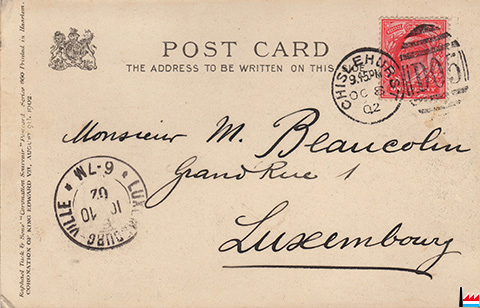 POST CARD
THE ADDRESS TO BE WRITTEN ON THIS
CHISLEHURST
9.15PM
OC 8
02
B05
Monsieur M. Beaucolin
Grand Rue 1
Luxembourg
LUXEMBOURG-VILLE
WL-9
10 10
02
Raphael Tuck & Sons' "Coronation Souvenir" Postcard. Series 690 Printed in Haarlem.
CORONATION OF KING EDWARD VII, AUGUST 9th, 1902